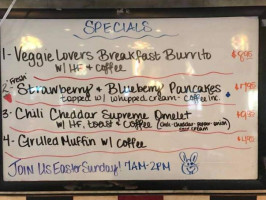 SPECIALS
1 - Veggie Lovers Breakfast Burrito
w/ HF + Coffee
"Fresh"
2 - Strawberry + Blueberry Pancakes
topped w/ whipped cream - coffee inc.
3 - Chili Cheddar Supreme Omelet
w/ HF, toast & Coffee (chili-cheddar-onion-
sour cream
4 - Grilled Muffin w/ Coffee
JOIN US Easter Sunday! 7AM-2PM